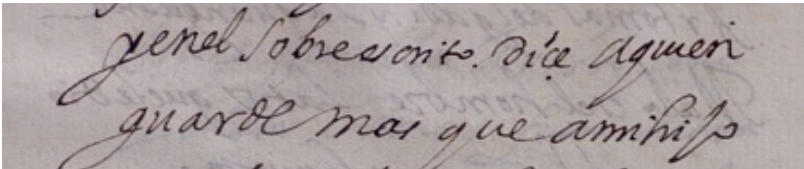 yenel sobreescrito. diçe aquien
guarde mas que amihijo